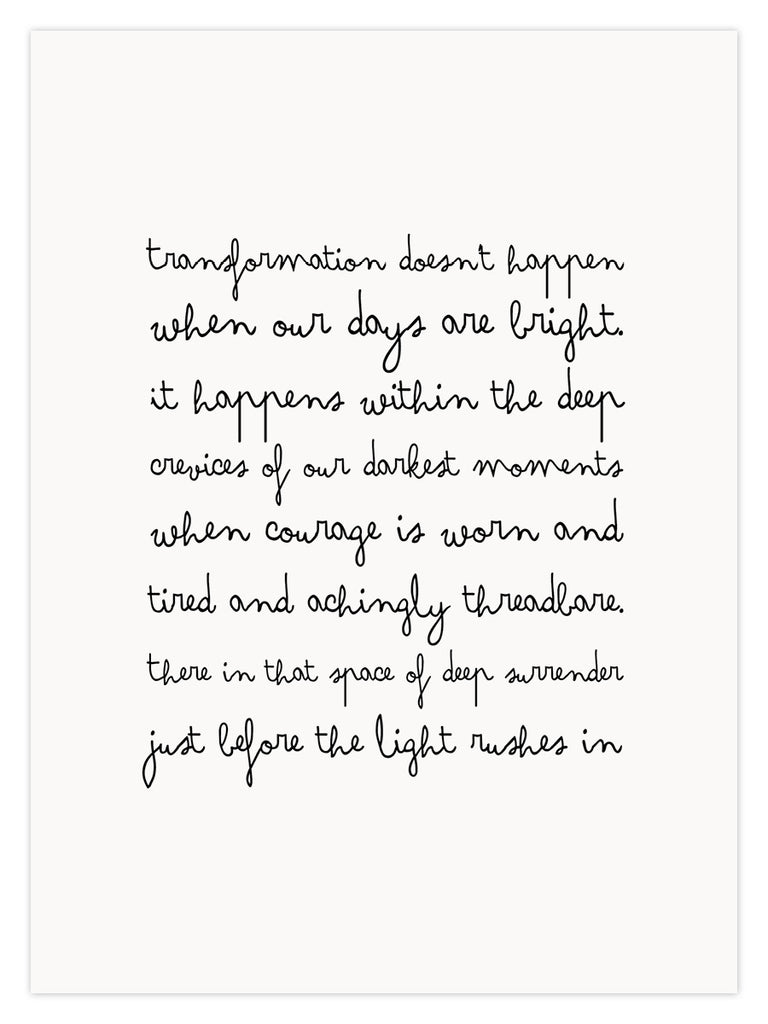 transformation doesn't happen
when our days are bright.
it happens within the deep
crevices of our darkest moments
when courage is worn and
tired and achingly threadbare.
there in that space of deep surrender
just before the light rushes in